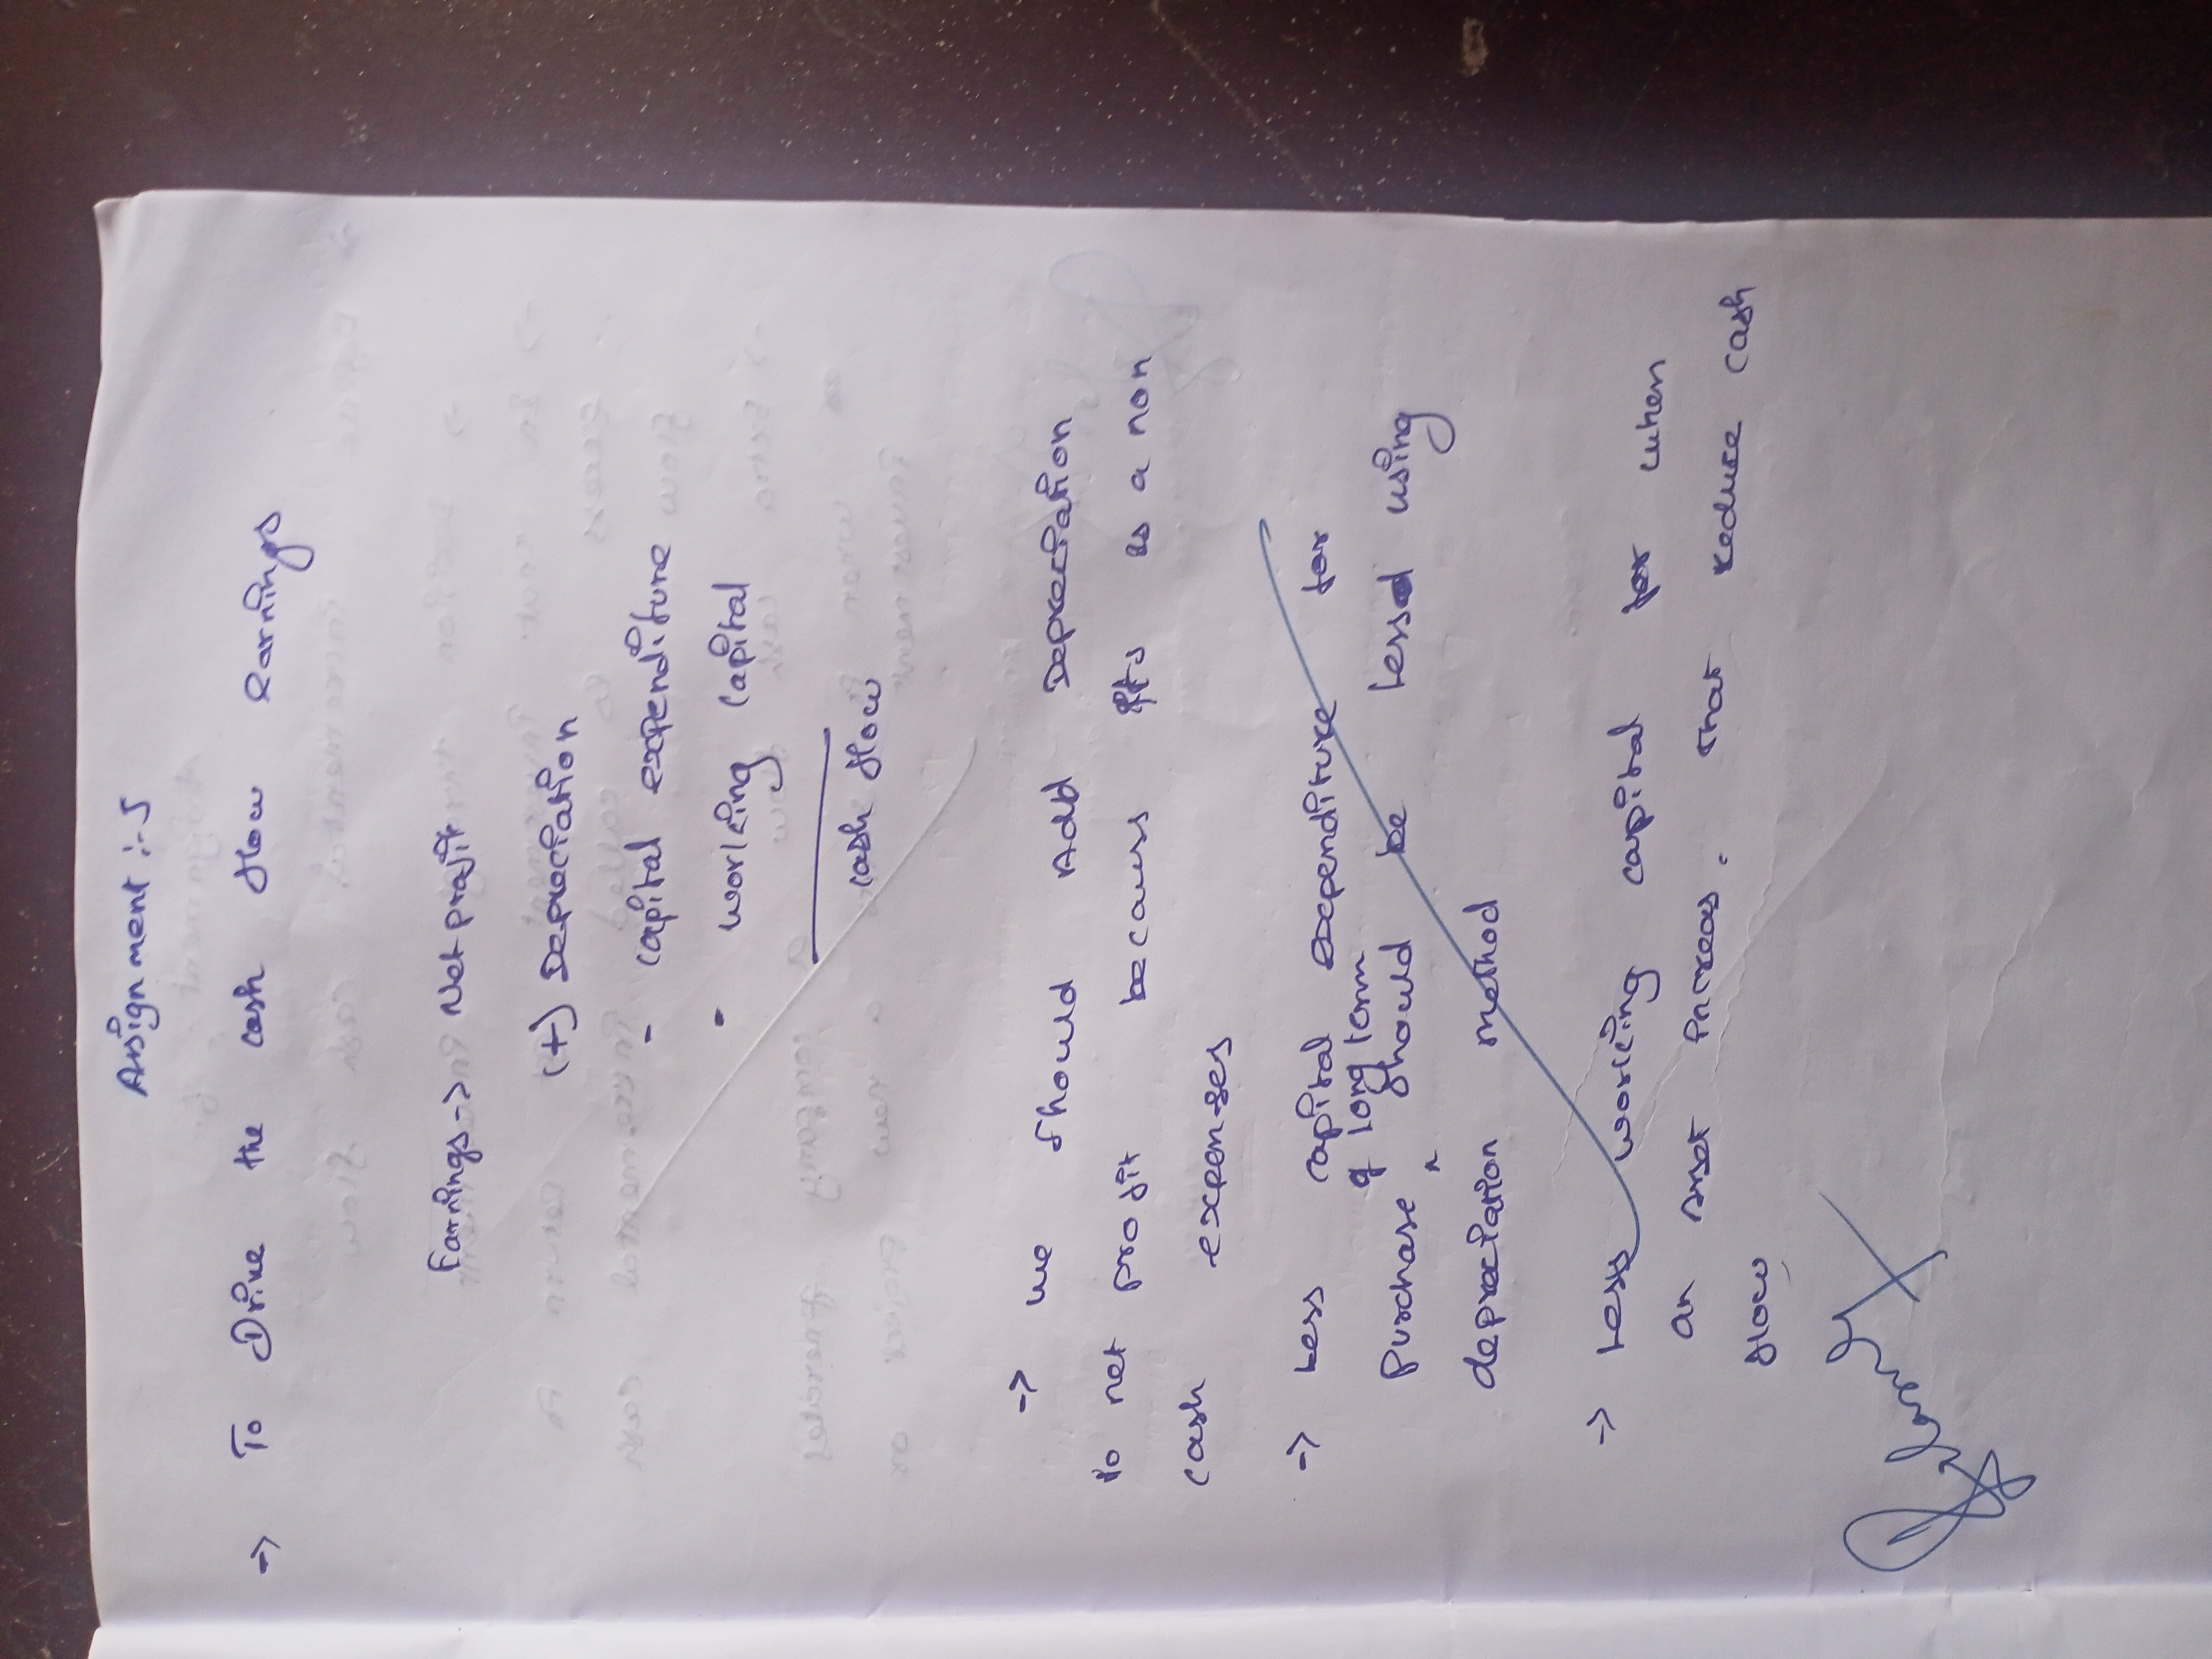 Assignment :- 5
=> To Drive the cash flow Earnings
Earnings -> Net profit
(+) Depreciation
- capital expenditure
- working capital
cash flow
=> we should Add Depreciation
to net profit because its is a non
cash expenses
=> Less capital expenditure for
purchase of long term should be Lessed using
depreciation method
=> Less working capital for when
an asset increas. that reduce cash
flow